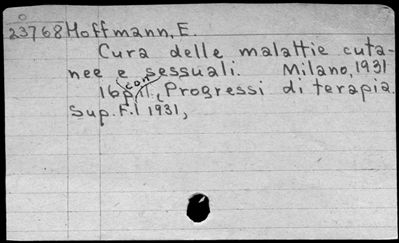 23768 Hoffmann, E.
Cura delle malattie cuta-
nee e sessuali. Milano, 1931
con
16p. il., Progressi di terapia.
Sup. F. 1 1931,